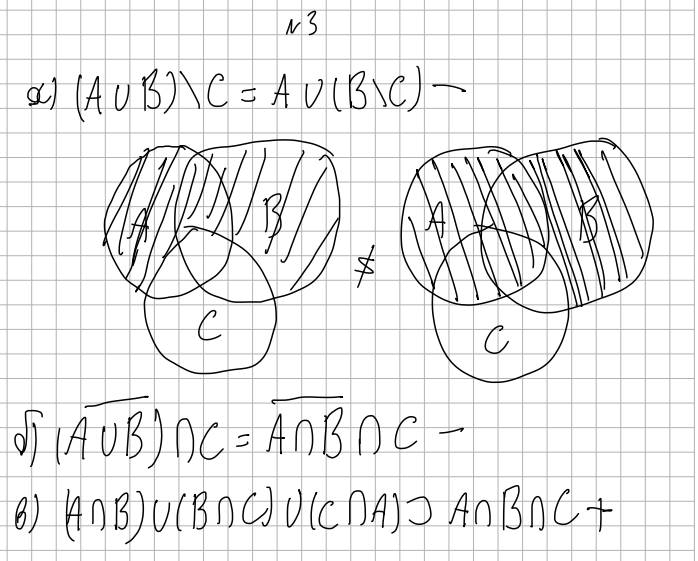 №3
а) (A∪B)\C = A∪(B\C) −
A B C ≠ A B C
б) (A∪B)‾∩C = A∩B‾∩C −
в) (A∩B)∪(B∩C)∪(C∩A)⊃ A∩B∩C +